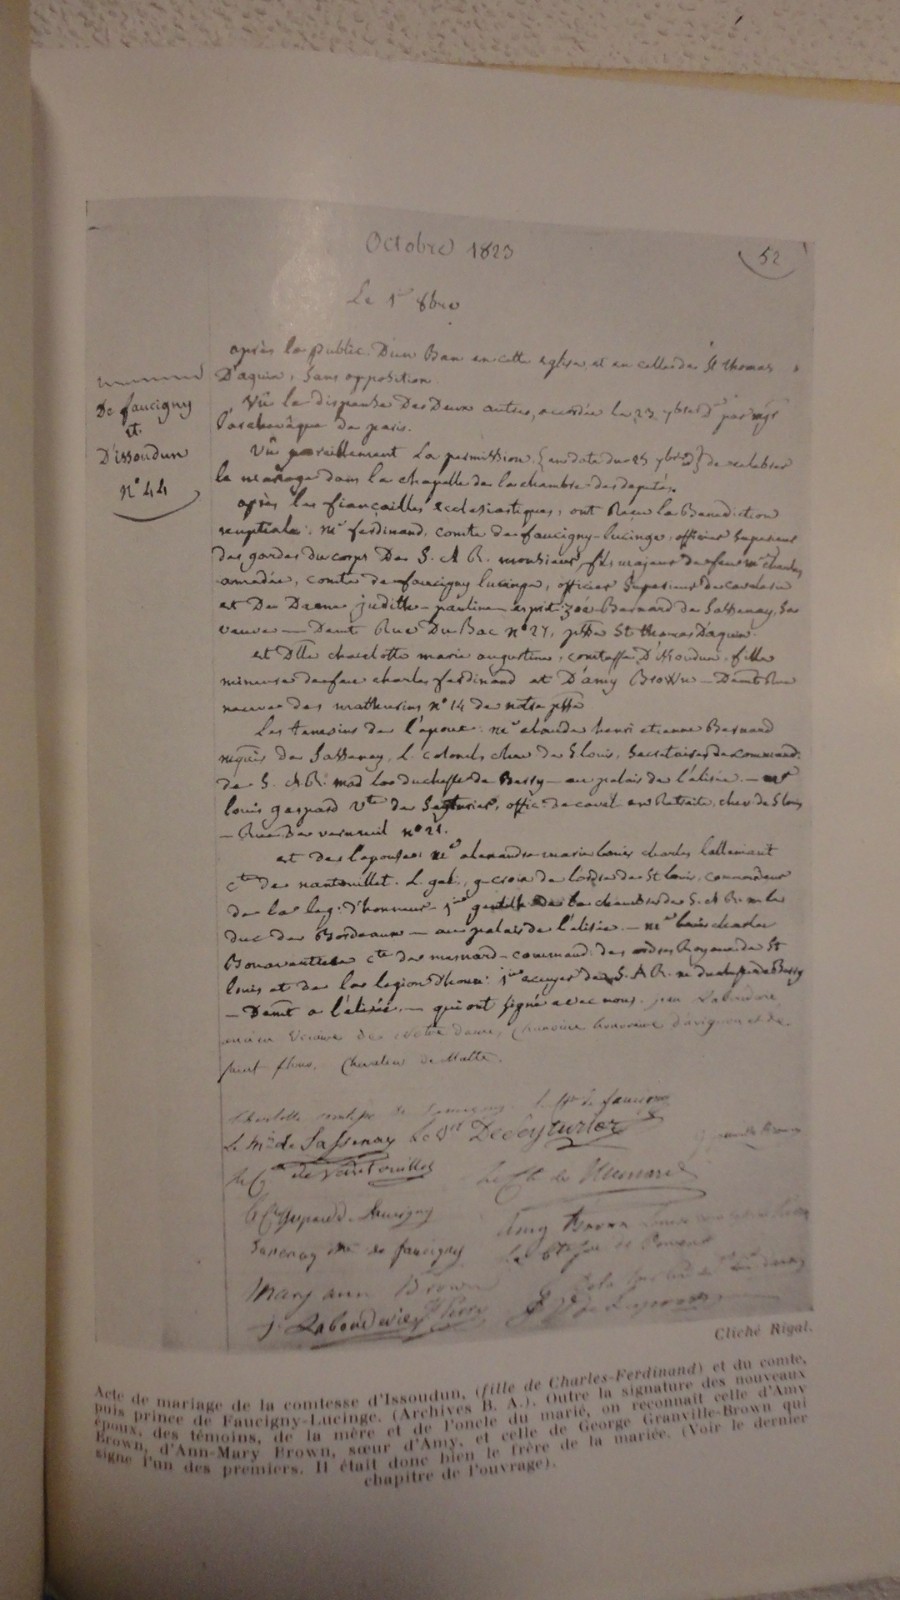 Octobre 1823
52
Le 1er 8bre
De faucigny
et
D'issoudun
n° 44
après la public. D'un Ban en cette eglise et en celle de St thomas
D'aquin, Sans opposition
Vu la dispense Des Deux autres, accordée le 23 7bre par
l'archevêque de paris.
Vu pareillement La permission (en date du 25 7bre) de celebrer
le mariage dans la chapelle de la chambre des deputés.
après les fiançailles ecclesiastiques, ont Reçu la Benediction
nuptiale: mr ferdinand, comte de faucigny-lucinge, officier Superieur
des gardes du corps De S. A R. monsieur, fils majeur de feu mr charles
amadée, comte de faucigny lucinge, officier Superieur de cavalerie
et De Dame judith-pauline-esprit-zoé Bernard de Sassenay, Sa
veuve — Demt Rue Du Bac n° 27, psse St thomas D'aquin.
et Dlle charlotte marie augustine, comtesse D'issoudun, fille
mineure de feu charles ferdinand et D'amy Brown — Demt Rue
neuve des mathurins n° 14 de notre psse
Les temoins de l'epoux: mr claude henri etienne Bernard
mquis de Sassenay, L. colonel, chev de St louis, Secretaire des command.
de S. A R. mad la duchesse de Berry — au palais de l'elisée — mr
louis gaspard Vte de Seyturier, offic. de caval en Retraite, chev de St louis
— Rue De verneuil n° 21.
et de l'epouse: mr alexandre marie louis charles lallemant
cte de nantouillet. L. gal, g. croix de l'ordre de St louis, commandeur
de la leg. d'honneur 1er gentilh de la chambre de S. A R. m le
duc de Bordeaux — au palais de l'elisée — mr louis charles
Bonaventure cte de mesnard — command. des ordres Royaux de St
louis et de la legion d'honn. 1er ecuyer de S. A R. me duchesse de Berry
— Demt a l'elisée, — qui ont signé avec nous. jean
honoraire d'avignon et de
saint flour. Chevalier de Malte.
Charlotte comtesse de
Le Mis de Sassenay Le Vt De Seyturier
le Cte de Nantouillet
Le Cte de Mesnard
de faucigny
Amy Brown
Sassenay de faucigny
Mary ann Brown
Cliché Rigal.
Acte de mariage de la comtesse d'Issoudun, (fille de Charles-Ferdinand) et du comte,
puis prince de Faucigny-Lucinge. (Archives B. A.). Outre la signature des nouveaux
époux, des témoins, de la mère et de l'oncle du marié, on reconnait celle d'Amy
Brown, d'Ann-Mary Brown, sœur d'Amy, et celle de George Granville-Brown qui
signe l'un des premiers. Il était donc bien le frère de la mariée. (Voir le dernier
chapitre de l'ouvrage).